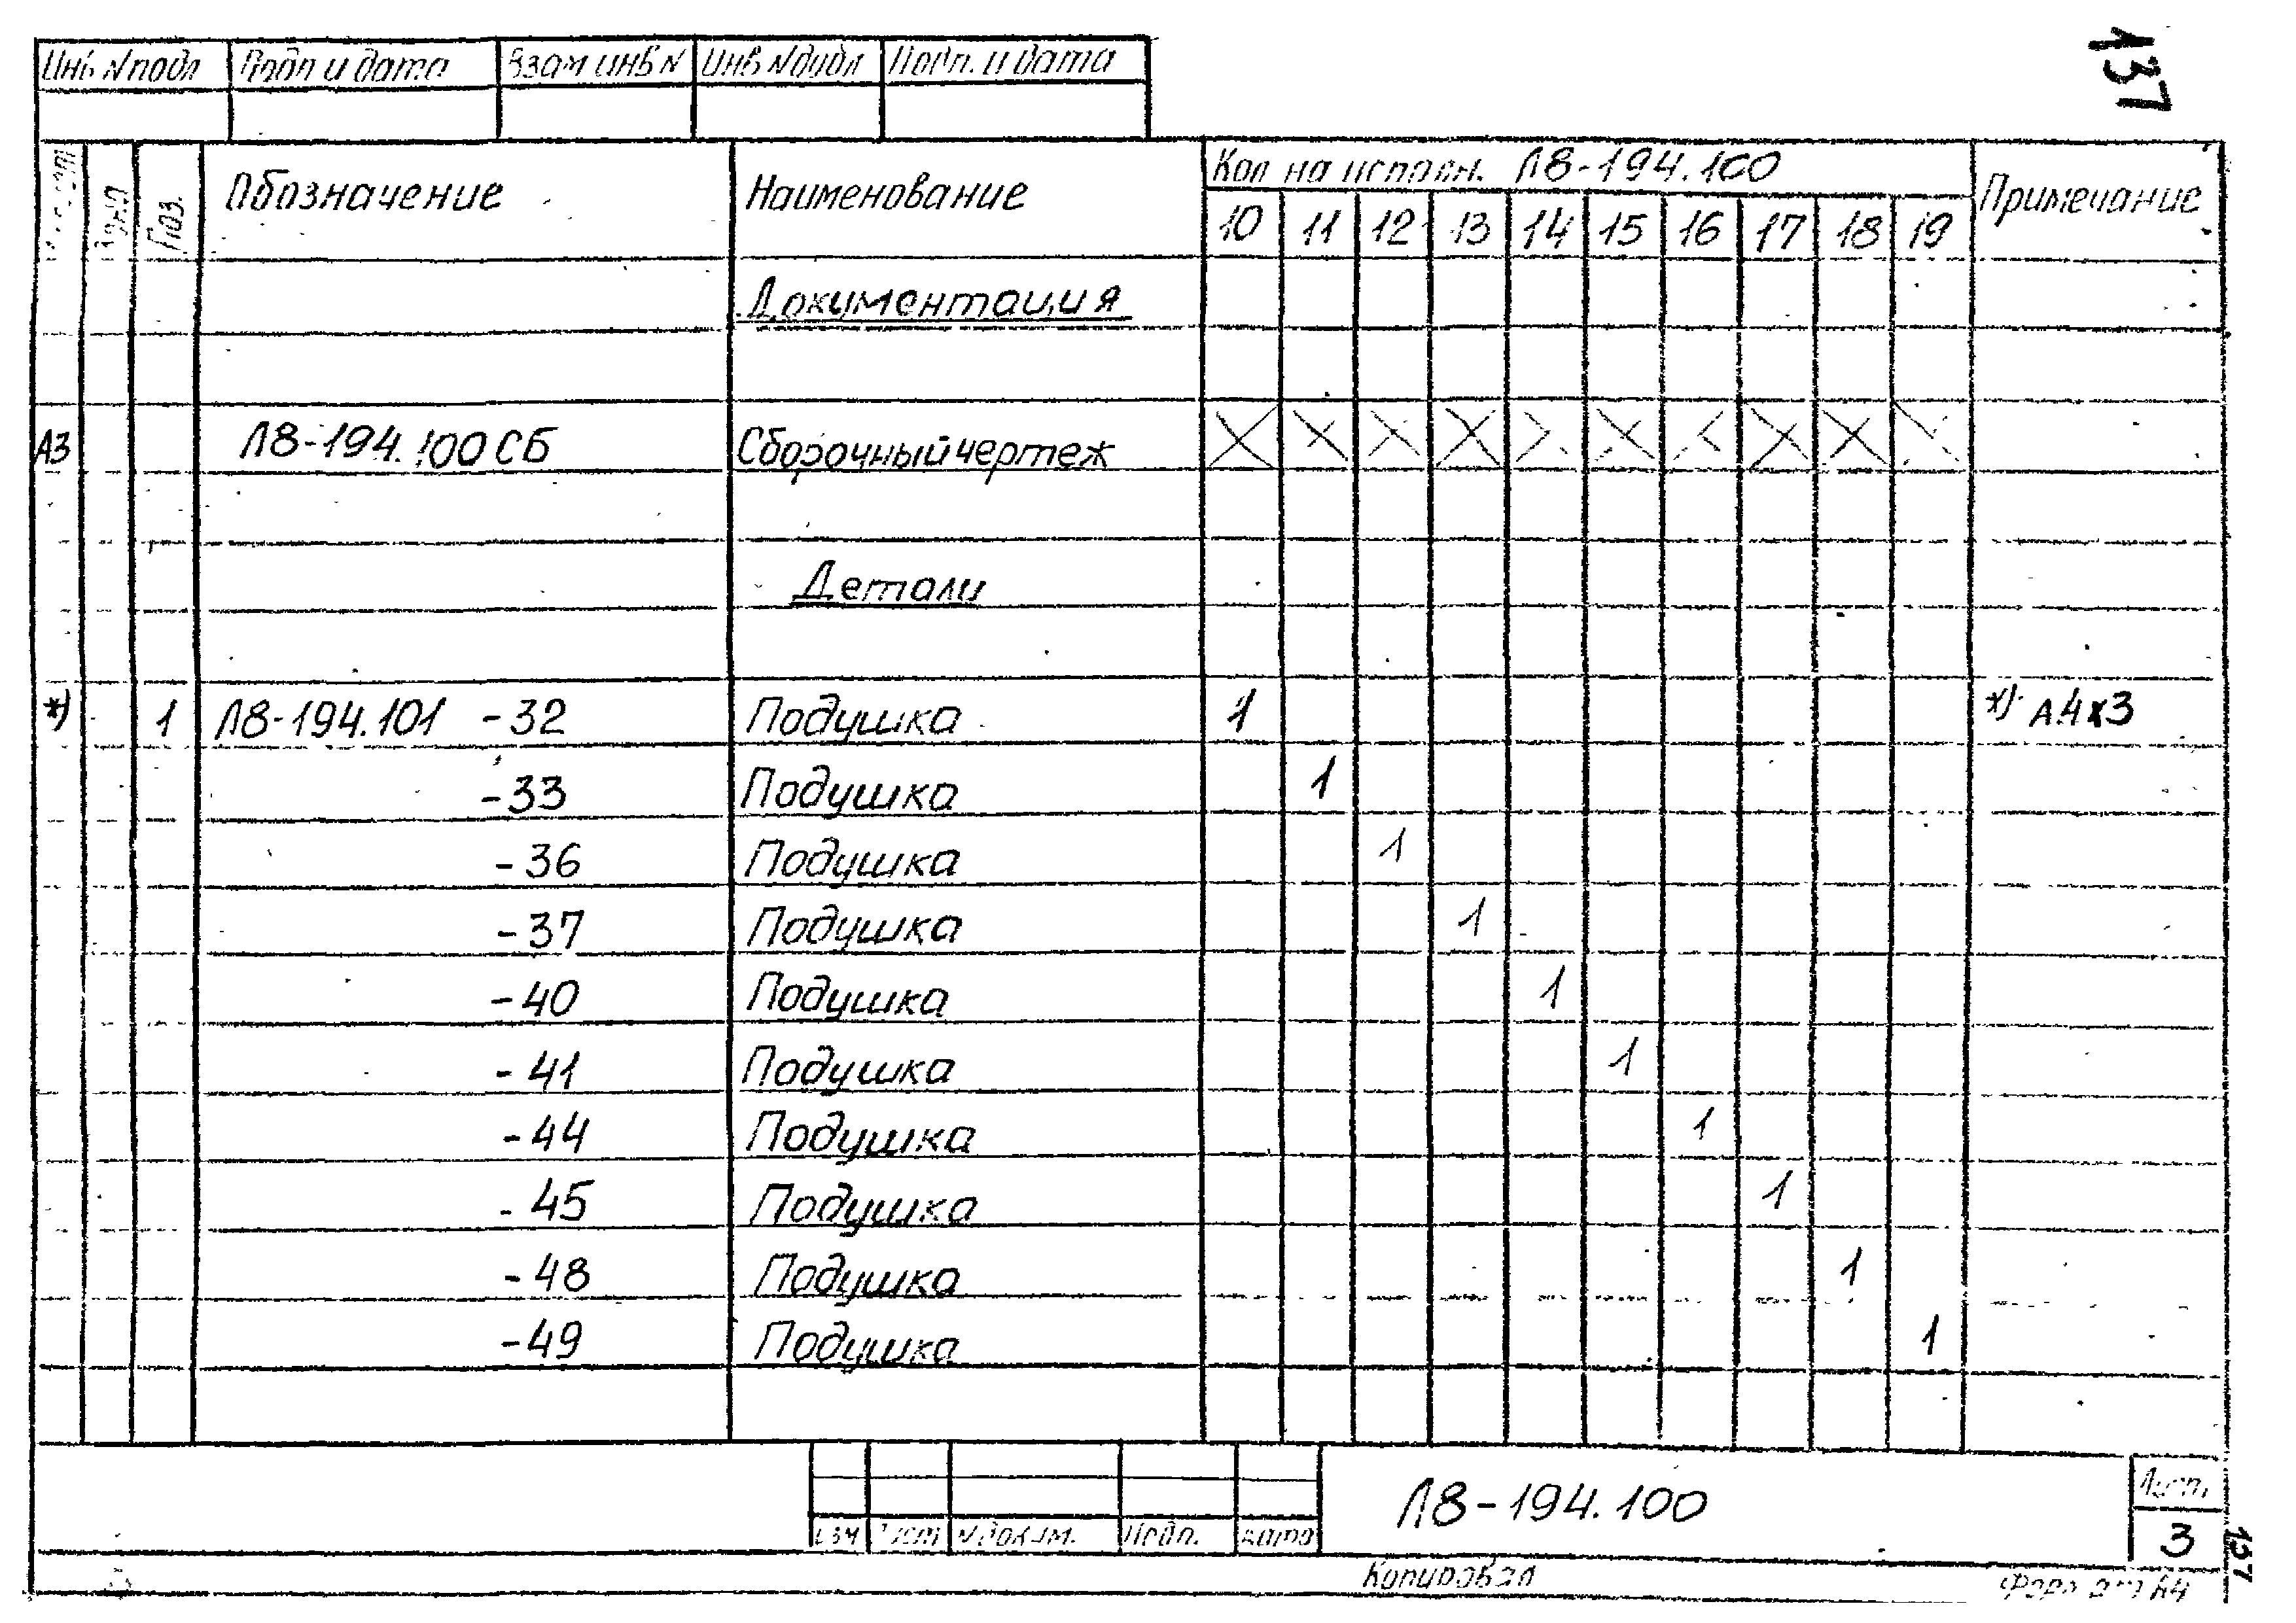 137
Инв N подл Подп и дата Взам инв N Инв N дубл Подп. и дата
Поз. Обозначение Наименование Кол на исполн. Л8-194.100 Примечание
10 11 12 13 14 15 16 17 18 19
Документация
А3 Л8-194.100 СБ Сборочный чертеж X X X X X X X X X X
Детали
*) 1 Л8-194.101 -32 Подушка 1 *) А4х3
-33 Подушка 1
-36 Подушка 1
-37 Подушка 1
-40 Подушка 1
-41 Подушка 1
-44 Подушка 1
-45 Подушка 1
-48 Подушка 1
-49 Подушка 1
Л8-194.100 Лист
Изм Лист N докум. Подп. Дата 3
Копировал Формат А4